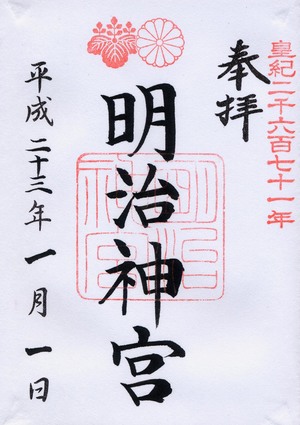 皇紀二千六百七十一年
奉拝
明治神宮
平成二十三年一月一日
明治神宮